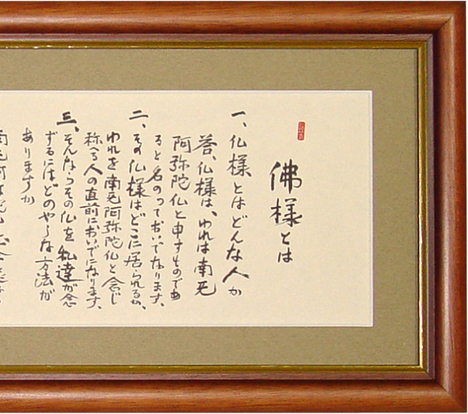 佛様とは
一、仏様とはどんな人か
答、仏様は、われは南无
阿弥陀仏と申すものであ
ると名のっておいでなります、
二、その仏様はどこに居られるか、
われを南无阿弥陀仏と念じ
称へる人の直前においでになります、
三、そんならその仏を私達が念
ずるにはどのやうな方法が
ありますか